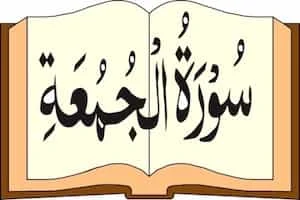 سُورَةُ الْجُمُعَةِ